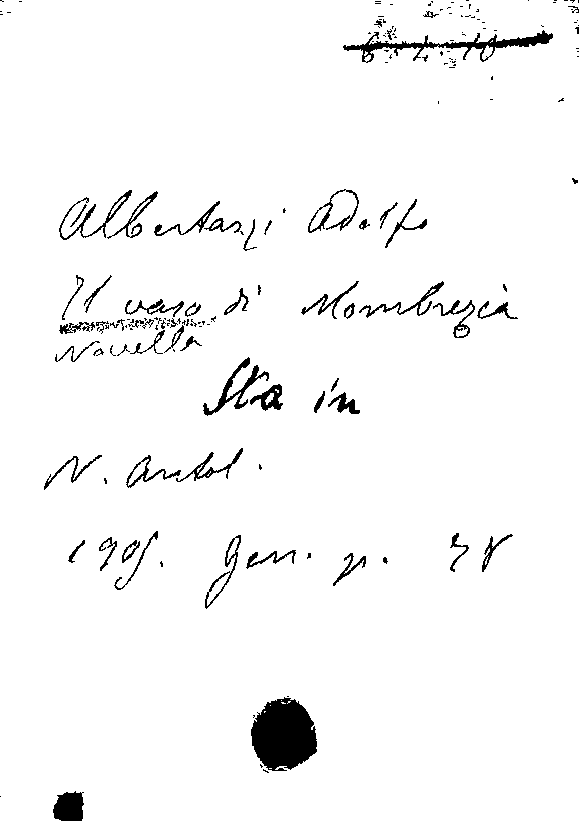 6.4.10
Albertazzi Adolfo
Il vaso di Mombrezia
Novella
Sta in
N. Antol.
1905. Gen. p. 78